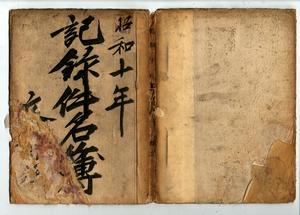 昭和十年
記録件名簿